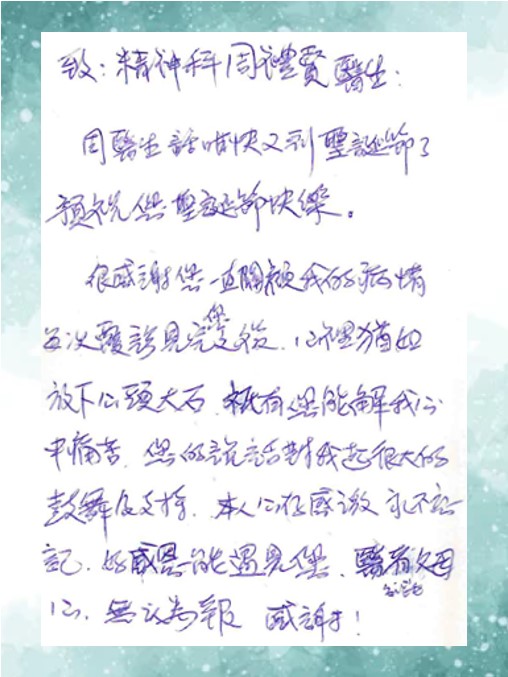 致：精神科周禮賢醫生：
周醫生話咁快又到聖誕節了
預祝您聖誕節快樂。
很感謝您一直關顧我的病情
每次覆診見完您之後，心裡猶如
放下心頭大石，祇有您能解我心
中痛苦，您的說話對我起很大的
鼓舞及支持，本人心存感激永不忘
記，好感恩能遇見您，醫者父母
心，無以為報 感謝！